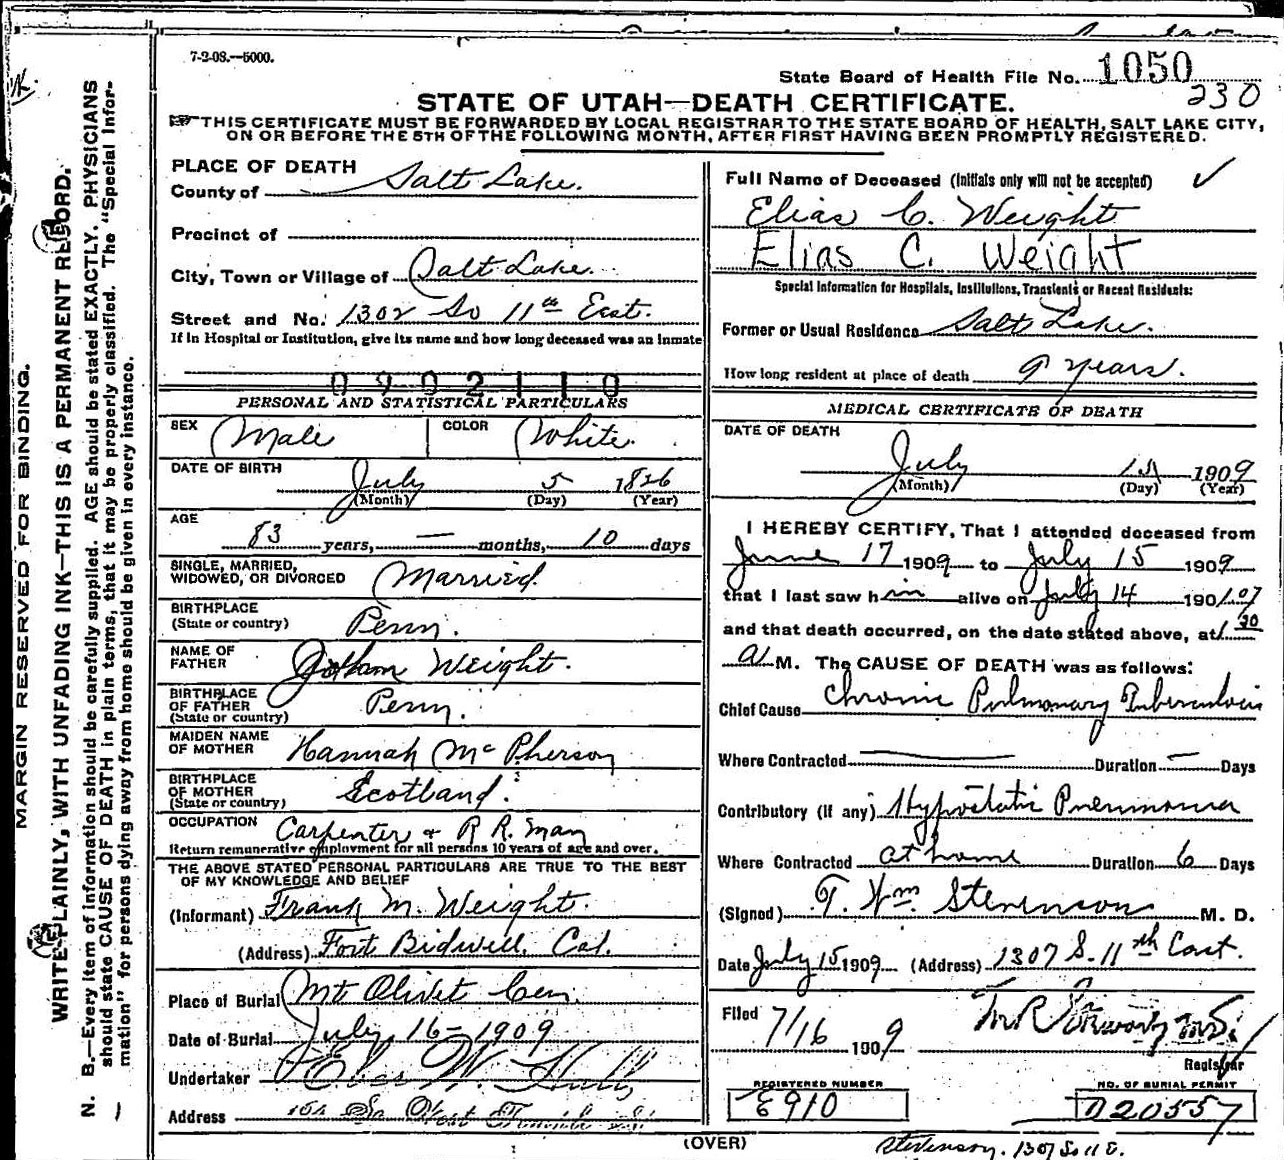 7-2-08.—5000.
State Board of Health File No. 1050
230
STATE OF UTAH—DEATH CERTIFICATE.
THIS CERTIFICATE MUST BE FORWARDED BY LOCAL REGISTRAR TO THE STATE BOARD OF HEALTH, SALT LAKE CITY,
ON OR BEFORE THE 5TH OF THE FOLLOWING MONTH, AFTER FIRST HAVING BEEN PROMPTLY REGISTERED.
MARGIN RESERVED FOR BINDING.
WRITE PLAINLY, WITH UNFADING INK—THIS IS A PERMANENT RECORD.
N. B.—Every item of information should be carefully supplied. AGE should be stated EXACTLY. PHYSICIANS
should state CAUSE OF DEATH in plain terms, that it may be properly classified. The "Special Infor-
mation" for persons dying away from home should be given in every instance.
PLACE OF DEATH
County of Salt Lake.
Precinct of
City, Town or Village of Salt Lake.
Street and No. 1302 So 11th East.
If in Hospital or Institution, give its name and how long deceased was an Inmate
0902110
PERSONAL AND STATISTICAL PARTICULARS
SEX Male COLOR White.
DATE OF BIRTH
July 5 1826
(Month) (Day) (Year)
AGE
83 years, — months, 10 days
SINGLE, MARRIED,
WIDOWED, OR DIVORCED Married.
BIRTHPLACE
(State or country) Penn.
NAME OF
FATHER Jotham Weight.
BIRTHPLACE
OF FATHER
(State or country) Penn.
MAIDEN NAME
OF MOTHER Hannah McPherson
BIRTHPLACE
OF MOTHER
(State or country) Scotland.
OCCUPATION Carpenter & R R. man
Return remunerative employment for all persons 10 years of age and over.
THE ABOVE STATED PERSONAL PARTICULARS ARE TRUE TO THE BEST
OF MY KNOWLEDGE AND BELIEF
(Informant) Frank M. Weight.
(Address) Fort Bidwell, Cal.
Place of Burial Mt Olivet Cem.
Date of Burial July 16-1909
Undertaker W.
Address So West Temple St
Full Name of Deceased (Initials only will not be accepted)
Elias C. Weight
Elias C. Weight
Special Information for Hospitals, Institutions, Transients or Recent Residents:
Former or Usual Residence Salt Lake.
How long resident at place of death 9 years.
MEDICAL CERTIFICATE OF DEATH
DATE OF DEATH
July 15 1909
(Month) (Day) (Year)
I HEREBY CERTIFY, That I attended deceased from
June 17 1909 to July 15 1909
that I last saw him alive on July 14 190
and that death occurred, on the date stated above, at 1 30
a M. The CAUSE OF DEATH was as follows:
Chief Cause Chronic Pulmonary Tuberculosis
Where Contracted — Duration — Days
Contributory (if any) Hypostatic Pneumonia
Where Contracted at home Duration 6 Days
(Signed) T. Wm. Stevenson M. D.
Date July 15 1909 (Address) 1307 S. 11th East.
Filed 7/16 1909
Registrar
REGISTERED NUMBER
E910
NO. OF BURIAL PERMIT
D20557
(OVER)
Stevenson. 1307 So 11 E.